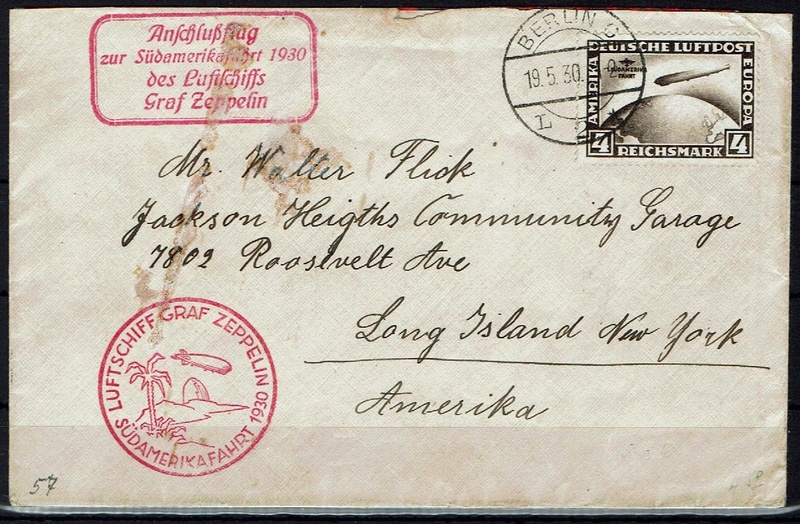 Anschlußflug
zur Südamerikafahrt 1930
des Luftschiffs
Graf Zeppelin
BERLIN C
19.5.30.
L
DEUTSCHE LUFTPOST
AMERIKA
EUROPA
SÜDAMERIKA
FAHRT
4
4
REICHSMARK
Mr. Walter Flick
Jackson Heigths Community Garage
7802 Roosevelt Ave
Long Island New York
Amerika
LUFTSCHIFF GRAF ZEPPELIN
SÜDAMERIKAFAHRT 1930
57